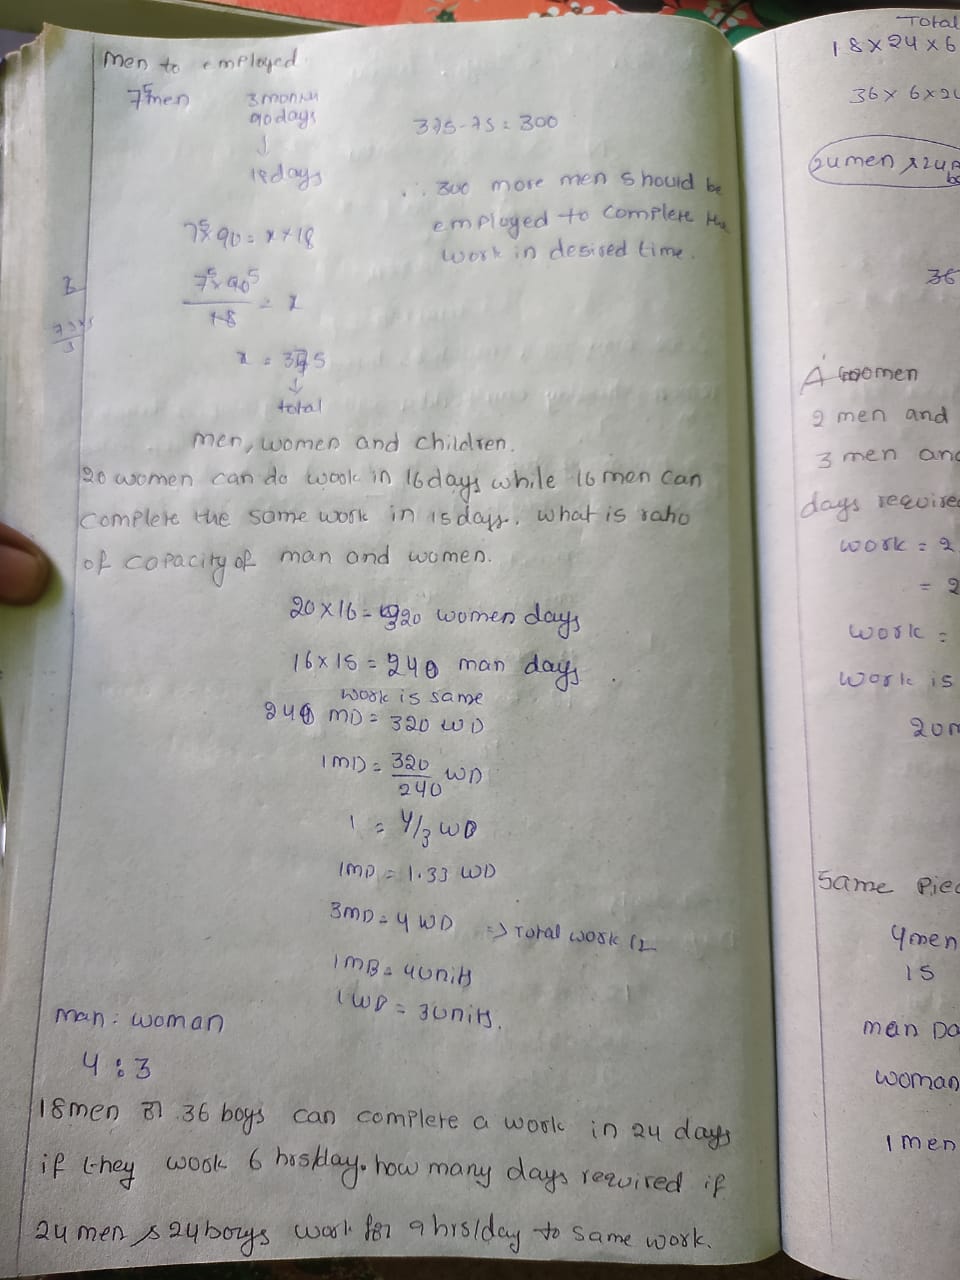 men to employed
75 men 3 month
90 days
↓
18 days
375-75 = 300
∴ 300 more men should be
employed to complete the
work in desired time.
75 x 90 = x x 18
75 x 90 5
18 = x
x = 375
↓
total
men, women and children.
20 women can do wook in 16 days while 16 men can
complete the same work in 15 days. what is ratio
of capacity of man and women.
20 x 16 = 320 women days
16 x 15 = 240 man days
work is same
240 MD = 320 WD
1MD = 320 WD
240
1 = 4/3 WD
1MD = 1.33 WD
3MD = 4 WD => Total work 12
1MD = 4 units
1WD = 3 units.
man : woman
4 : 3
18 men or 36 boys can complete a work in 24 days
if they wook 6 hrs/day. how many days required if
24 men & 24 boys work for 9 hrs/day to same work.
Total
18 x 24 x 6
36 x 6 x 24
24 men & 24
36
A women
2 men and
3 men and
days require
work = 2
= 2
work =
work is
20
Same Pie
4 men
15
man Da
woman
1 men